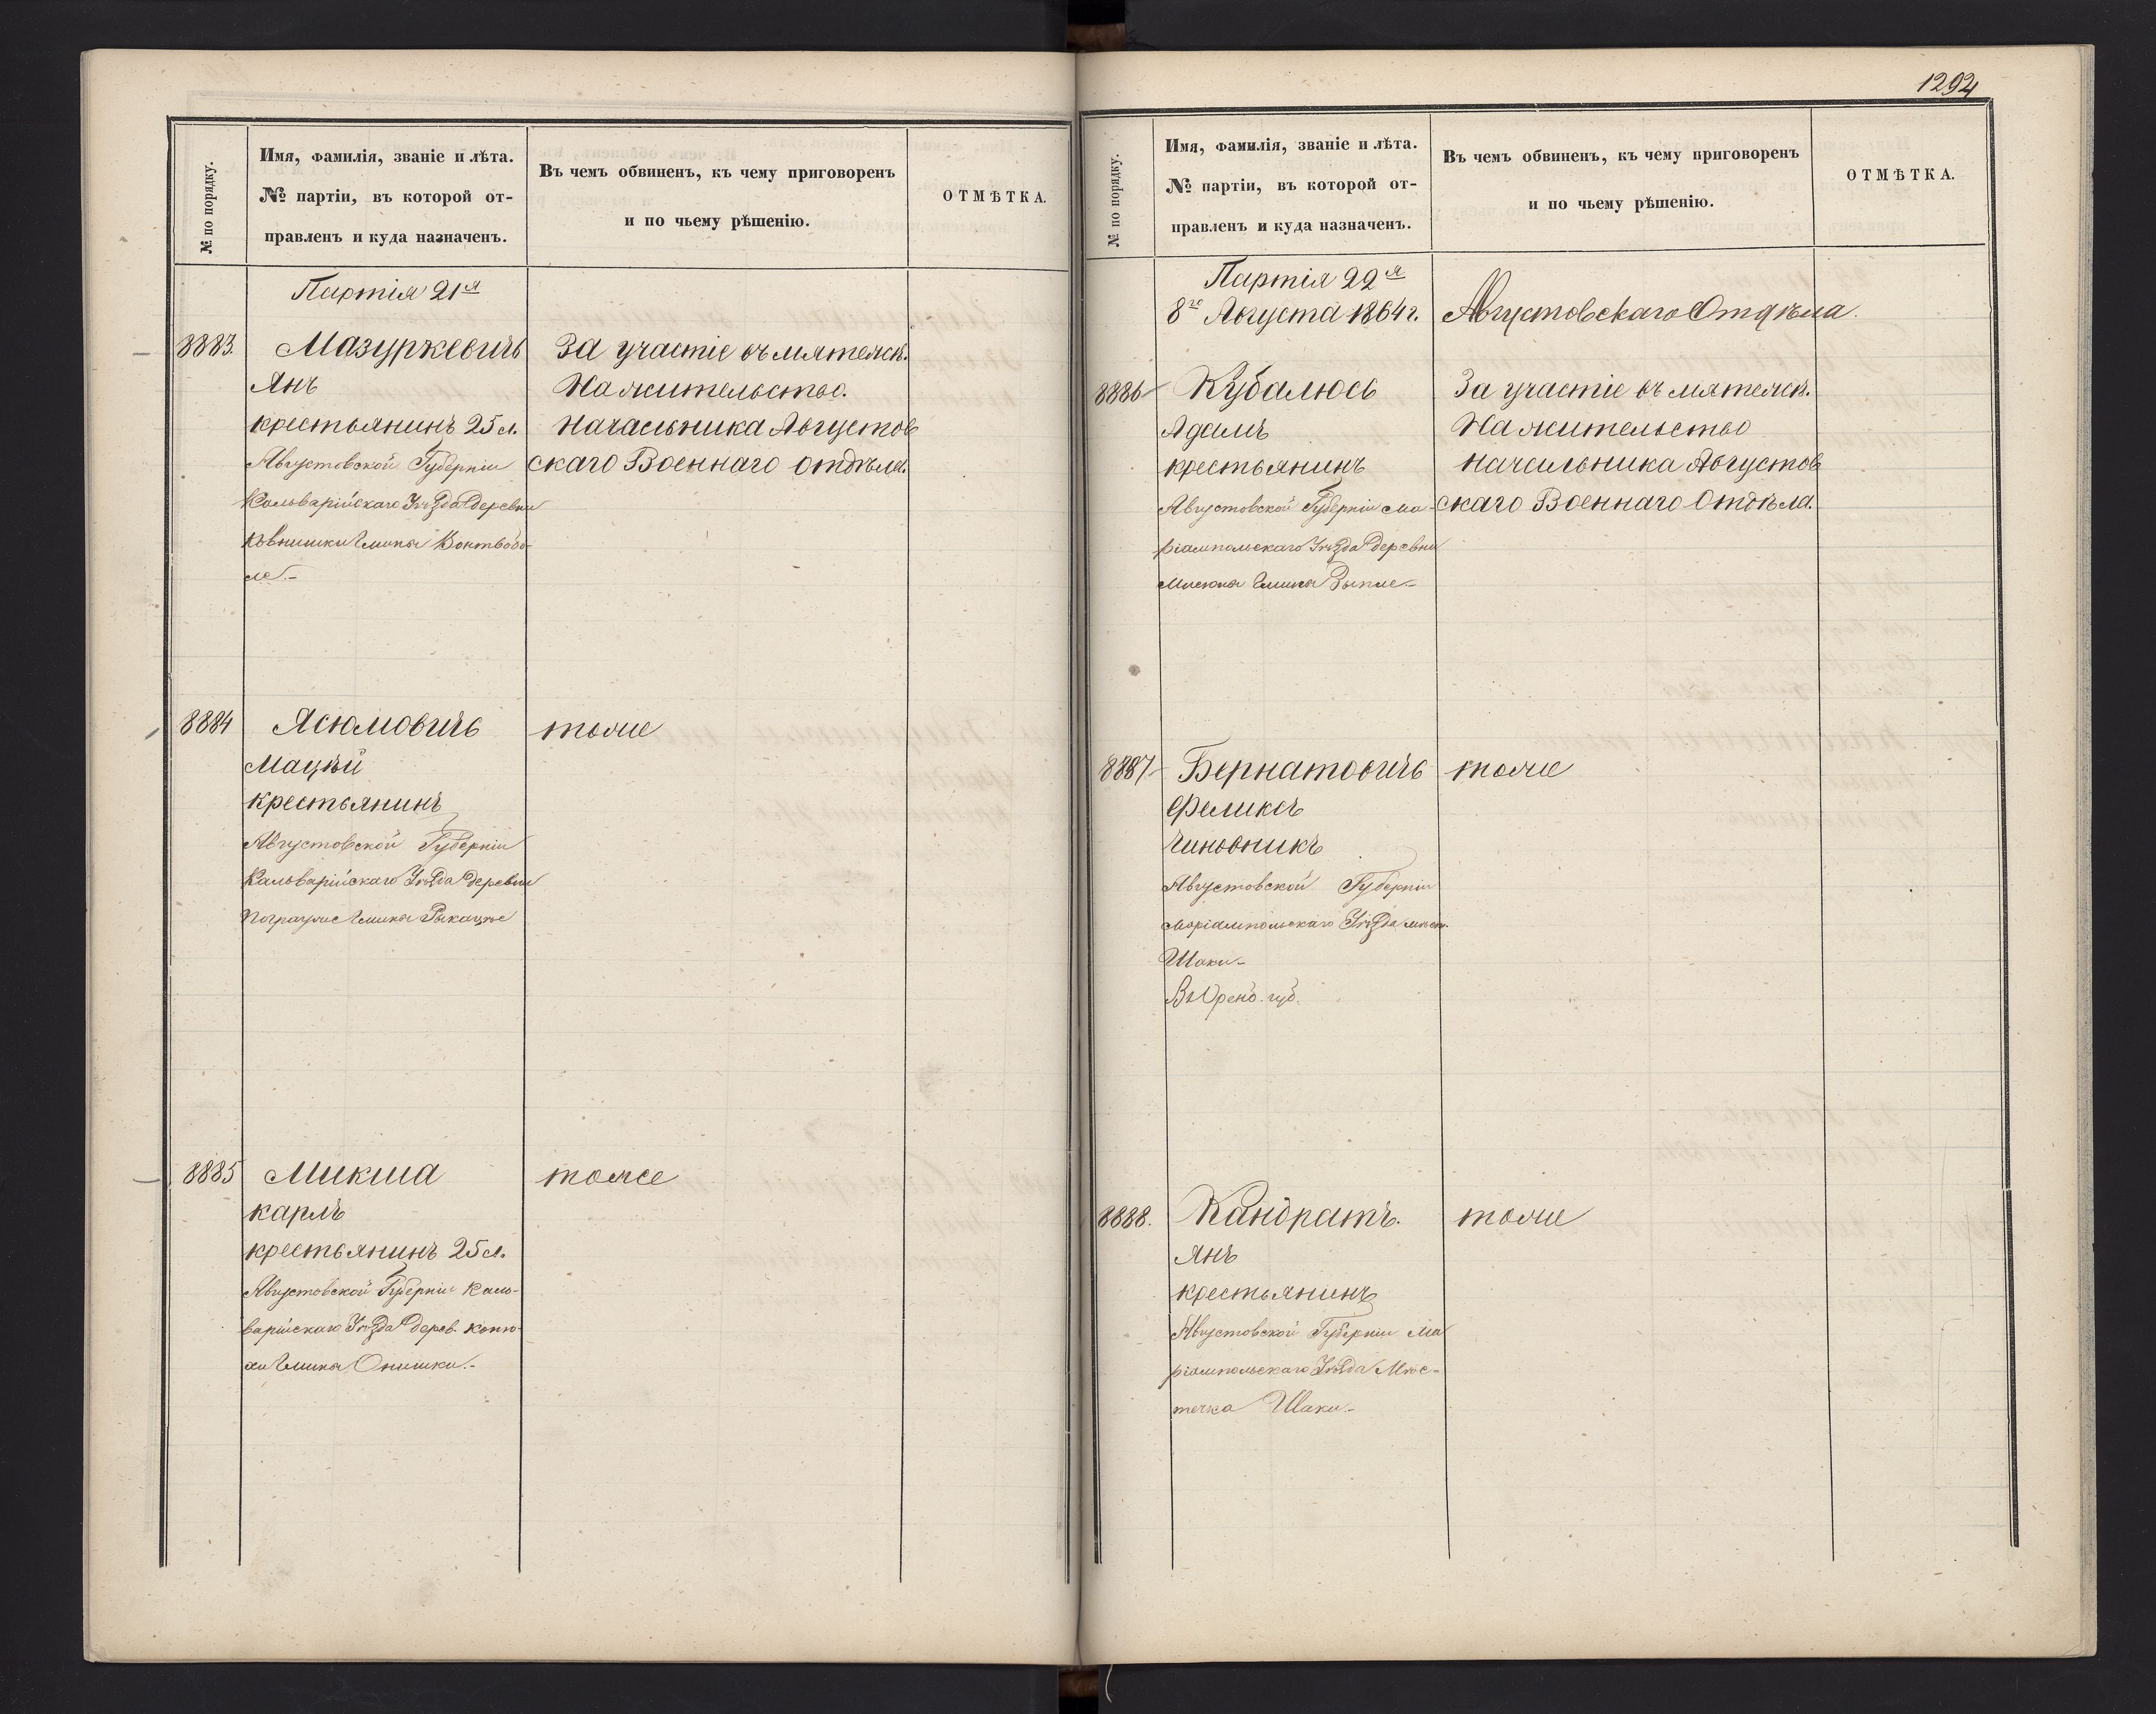 № по порядку.
Имя, фамилія, званіе и лѣта.
№ партіи, въ которой от-
правленъ и куда назначенъ.
Въ чемъ обвиненъ, къ чему приговоренъ
и по чьему рѣшенію.
ОТМѢТКА.
Партія 21я
8883. Мазуркевичъ
Янъ
крестьянинъ 25 л.
Августовской Губерніи
Кальварійскаго Уѣзда деревни
гмина
ле.-
За участіе въ мятежѣ.
На жительство.
Начальника Августов
скаго Военнаго отдѣла.
8884 Ясюмовичъ
Мацѣй
крестьянинъ
Августовской Губерніи
Кальварійскаго Уѣзда деревни
гмина
тоже
8885 Микша
карлъ
крестьянинъ 25 л.
Августовской Губерніи Каль-
варійскаго Уѣзда дерев. Коню-
хи гмина Онишки.-
тоже
1294
№ по порядку.
Имя, фамилія, званіе и лѣта.
№ партіи, въ которой от-
правленъ и куда назначенъ.
Въ чемъ обвиненъ, къ чему приговоренъ
и по чьему рѣшенію.
ОТМѢТКА.
Партія 22я
8го Августа 1864 г.
Августовскаго Отдѣла.
8886 Кубалюсь
Адамъ
крестьянинъ
Августовской Губерніи Ма-
ріампольскаго Уѣзда деревни
гмина Зыпле.-
За участіе въ мятежѣ.
На жительство
начальника Августов
скаго Военнаго Отдѣла.
8887 Бернатовичъ
Феликсъ
чиновникъ
Августовской Губерніи
Маріампольскаго Уѣзда мѣст.
Шаки-
Въ Оренб. губ.
тоже
8888. Кандратъ.
Янъ
крестьянинъ
Августовской Губерніи Ма
ріампольскаго Уѣзда Мѣс-
течка Шаки.-
тоже